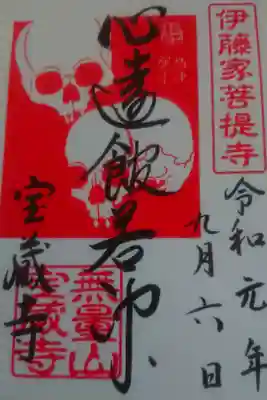 伊藤家菩提寺
令和元年
九月六日
心遠館若冲
宝蔵寺
無量山
宝蔵寺